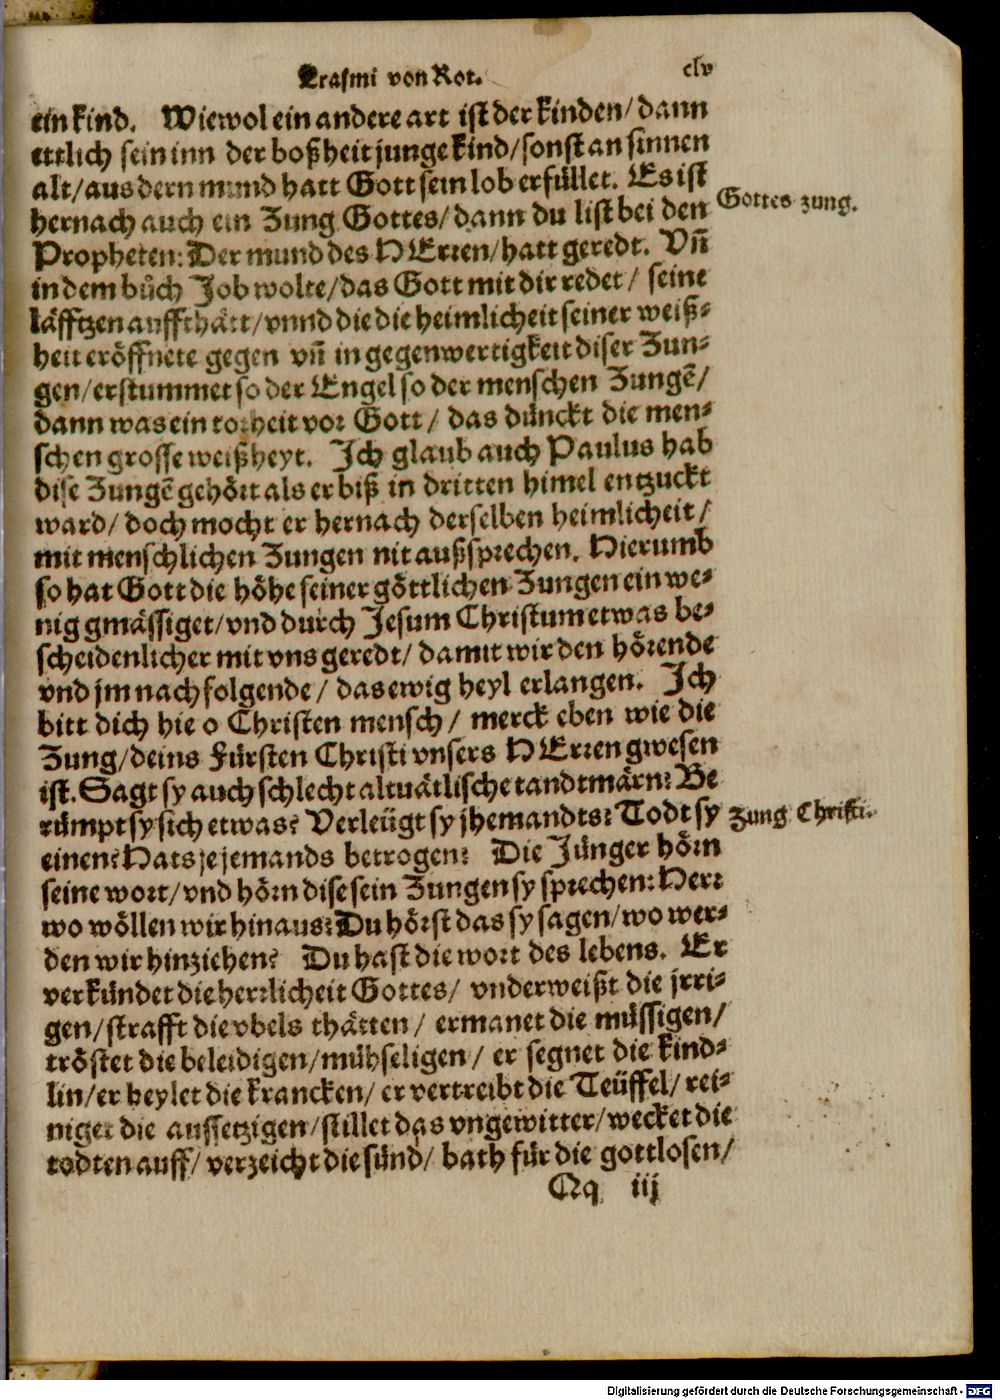 Erasmi von Rot.
clv
ein kind. Wiewol ein andere art ist der kinden/ dann
ettlich sein inn der boßheit junge kind/ sonst an sinnen
alt/ aus dern mund hatt Gott sein lob erfüllet. Es ist
hernach auch ein Zung Gottes/ dann du list bei den
Gottes zung.
Propheten: Der mund des HErren/ hatt geredt. Vñ
in dem bůch Job wolte/ das Gott mit dir redet/ seine
läfftzen auffthätt/ vnnd die die heimlicheit seiner weiß-
heit eröffnete gegen vñ in gegenwertigkeit diser Zun-
gen/ erstummet so der Engel so der menschen Zungẽ/
dann was ein torheit vor Gott/ das dünckt die men-
schen grosse weißheyt. Ich glaub auch Paulus hab
dise Zungẽ gehört als er biß in dritten himel entzuckt
ward/ doch mocht er hernach derselben heimlicheit/
mit menschlichen Zungen nit außsprechen. Hierumb
so hat Gott die höhe seiner göttlichen Zungen ein we-
nig gmässiget/ vnd durch Jesum Christum etwas be-
scheidenlicher mit vns geredt/ damit wir den hörende
vnd jm nachfolgende/ das ewig heyl erlangen. Ich
bitt dich hie o Christen mensch/ merck eben wie die
Zung/ deins Fürsten Christi vnsers HErren gwesen
ist. Sagt sy auch schlecht altuätlische tandtmärn? Be
rümpt sy sich etwas? Verleügt sy jhemandts? Todt sy
Zung Christi.
einen? Hats je jemands betrogen? Die Jünger hörn
seine wort/ vnd hörn dise sein Zungen sy sprechen: Herr
wo wöllen wir hinaus? Du hörst das sy sagen/ wo wer-
den wir hinziehen? Du hast die wort des lebens. Er
verkündet die herrlicheit Gottes/ vnderweißt die jrri-
gen/ strafft die vbels thätten/ ermanet die müssigen/
tröstet die beleidigen/ mühseligen/ er segnet die kind-
lin/ er heylet die krancken/ er vertreibt die Teüffel/ rei-
niget die aussetzigen/ stillet das vngewitter/ wecket die
todten auff/ verzeicht die sünd/ bath für die gottlosen/
Qq iij
Digitalisierung gefördert durch die Deutsche Forschungsgemeinschaft - DFG